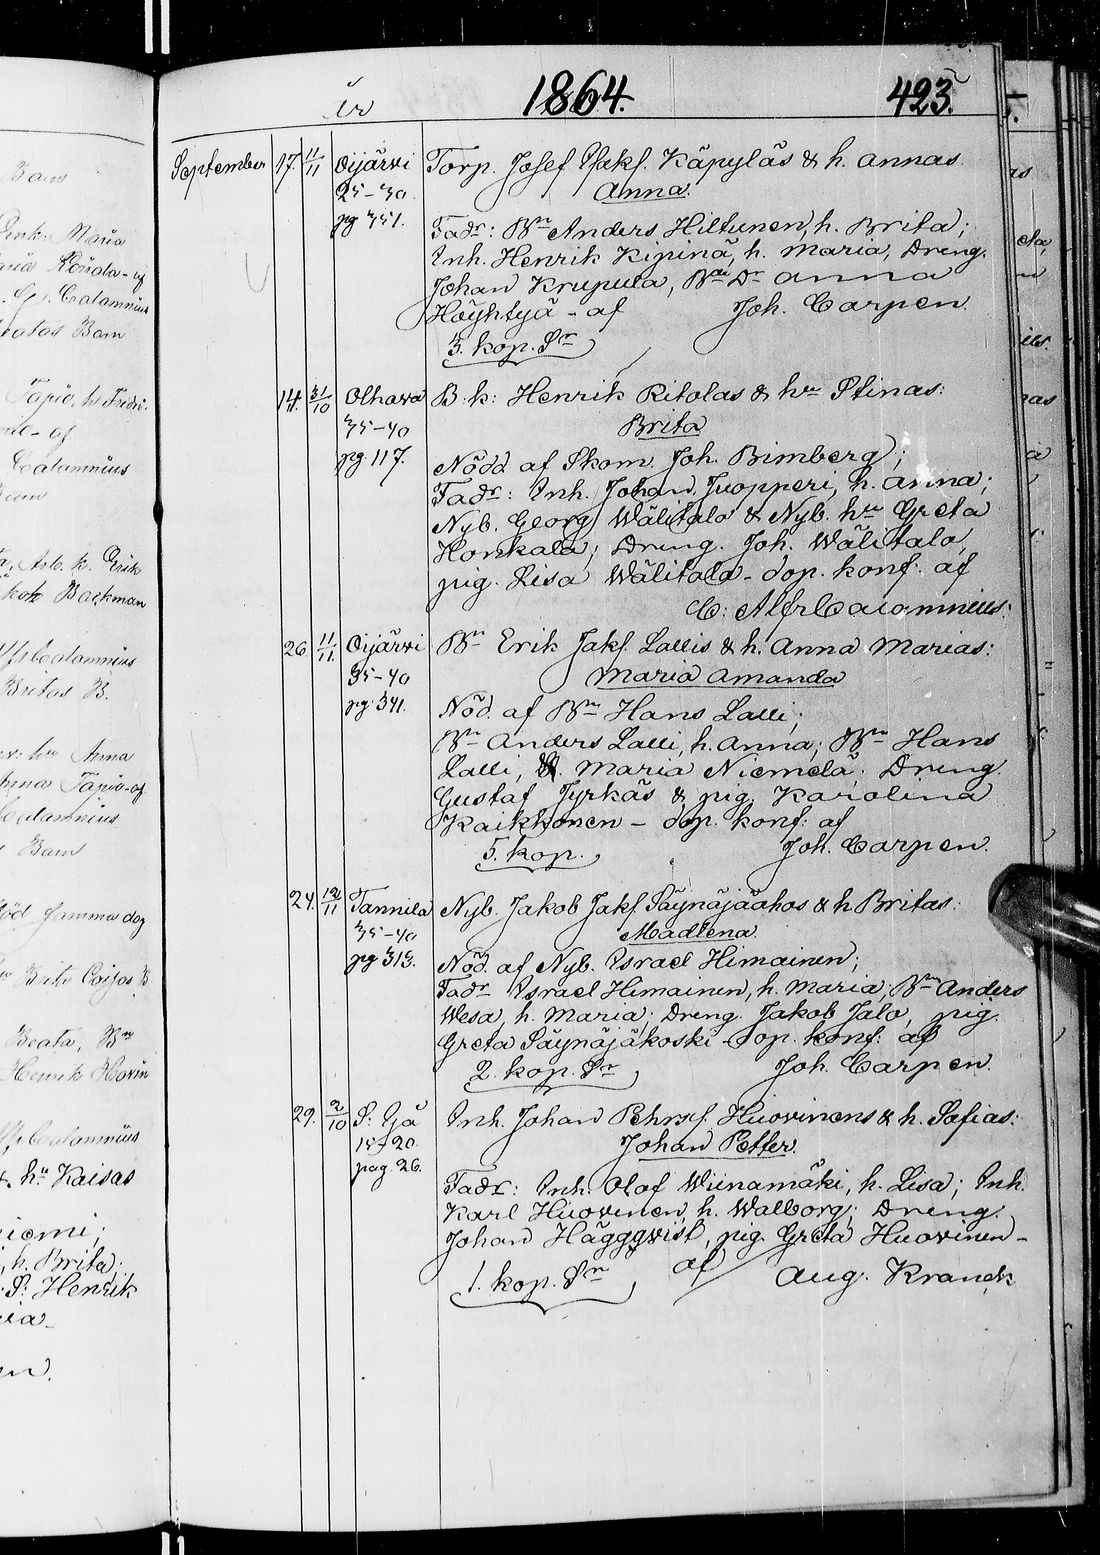 år 1864. 423.
September 17. 11/11 Oijärvi Torp. Josef Jakf. Käpyläs & h. Annas
25-30. Anna.
pg 351. Fadr: Bn Anders Hiltunen, h. Brita;
Inh. Henrik Kipinä, h. Maria, Dreng.
Johan Krupula, Bde Dr Anna
Höyhtyä - af Joh. Carpen.
3. kop. Sr
14. 31/10 Olhava B. k: Henrik Ritolas & hn Stinas:
35-40 Brita
pg 117. Nödd af Skom. Joh. Bimberg;
Fadr: Inh. Johan Juopperi, h. Anna;
Nyb. Georg Wälitalo & Nyb. hn Greta
Honkala; Dreng. Joh. Wälitalo,
pig. Lisa Wälitalo - dop. konf. af
C: Alfr Calamnius.
26. 11/11. Oijärvi Bn Erik Jakf. Lallis & h. Anna Marias:
35-40 Maria Amanda
pg 341. Nöd. af Bn Hans Lalli;
Bn Anders Lalli, h. Anna; Bn Hans
Lalli, Maria Niemelä; Dreng.
Gustaf Tyrkäs & pig. Karolina
Kaikkonen - dop. konf: af
5. kop. Joh. Carpen.
24. 12/11 Tannila Nyb. Jakob Jakf. Säynäjäahos & h Britas:
35-40 Madlena.
pg 313. Nöd. af Nyb. Israel Himainen;
Fadr Israel Himainen, h. Maria; Bn Anders
Wesa, h. Maria; Dreng. Jakob Jalo, pig.
Greta Säynäjäkoski - dop. konf: af
2. kop. Sr Joh. Carpen.
29. 2/10 S: Ijå Inh. Johan Pehrsf. Huovinens & h. Sofias:
15-20. Johan Petter.
pag. 26. Fadr: Inh. Olof Wiinamäki, h. Lisa; Inh.
Karl Huovinen, h. Walborg; Dreng.
Johan Häggqvist, pig. Greta Huovinen -
1. kop. Sr af Aug. Kranck